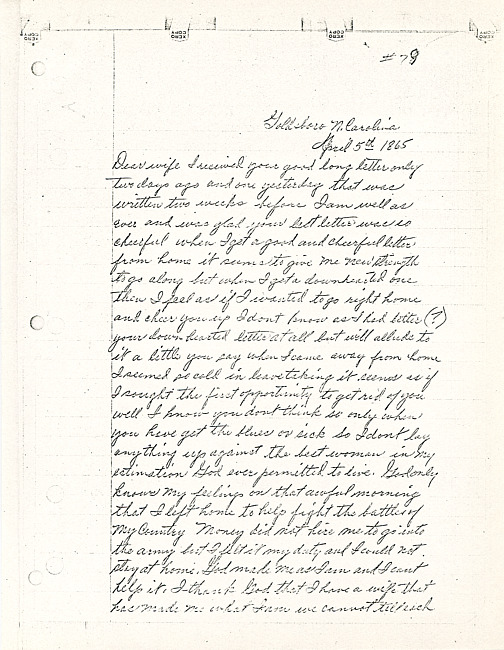 XEROX COPY XEROX COPY XEROX COPY XEROX COPY
#79
Goldsboro N. Carolina
April 5th 1865
Dear wife I received your good long letter only
two days ago and one yesterday that was
written two weeks before I am well as
ever and was glad your last letter was so
cheerful when I get a good and cheerful letter
from home it seems to give me new strength
to go along but when I get a downhearted one
then I feel as if I wanted to go right home
and cheer you up I dont know as I had better (?)
your down hearted letter at all but will allude to
it a little you say when I came away from home
I seemed so cold in leavetaking it seems as if
I sought the first opportunity to get rid of you
well I know you dont think so only when
you have got the blues or sick so I dont lay
anything up against the best woman in my
estimation God ever permitted to live. God only
knows my feelings on that awful morning
that I left home to help fight the battles of
my Country Money did not hire me to go into
the army but I felt it my duty and I could not
stay at home. God made me as I am and I cant
help it. I thank God that I have a wife that
has made me what I am we cannot tell each